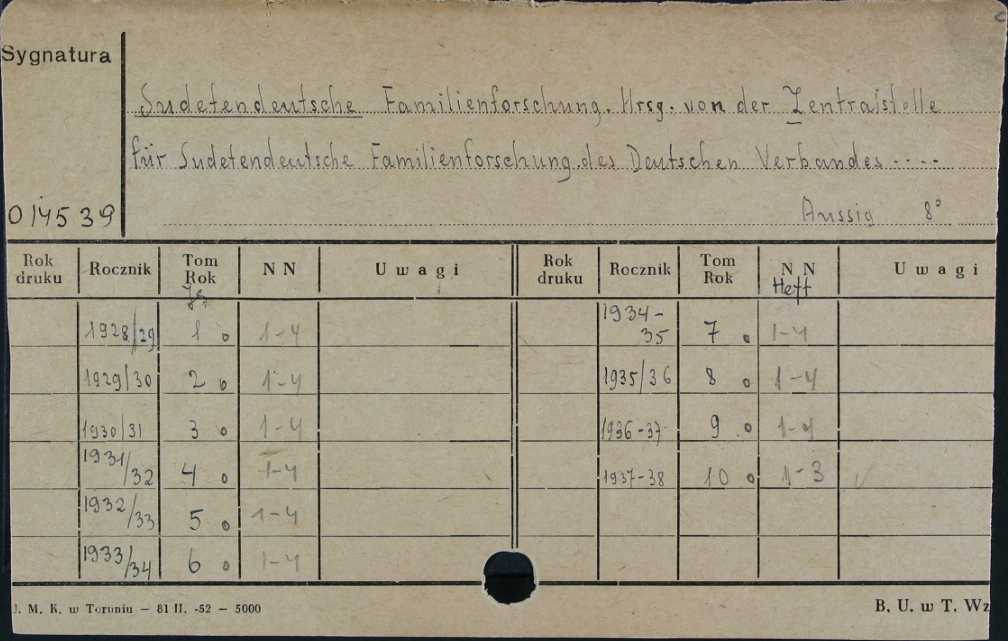 Sygnatura
Sudetendeutsche Familienforschung. Hrsg. von der Zentralstelle
für Sudetendeutsche Familienforschung des Deutschen Verbandes ....
Aussig 8°
014539
Rok druku Rocznik Tom Rok NN Uwagi Rok druku Rocznik Tom Rok NN Uwagi
Jg. Heft
1928/29 1 o 1-4 1934-35 7 o 1-4
1929/30 2 o 1-4 1935/36 8 o 1-4
1930/31 3 o 1-4 1936-37 9 o 1-4
1931/32 4 o 1-4 1937-38 10 o 1-3
1932/33 5 o 1-4
1933/34 6 o 1-4
J. M. K. w Toruniu — 81 II. -52 — 5000 B. U. w T. Wz